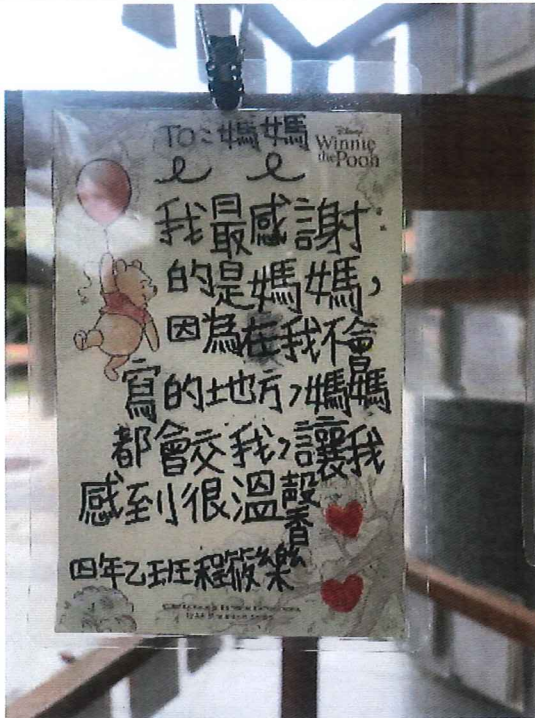 TO:媽媽
Disney
Winnie
the Pooh
我最感謝
的是媽媽，
因為在我不會
寫的地方，媽媽
都會交我，讓我
感到很溫馨
四年乙班程筱樂